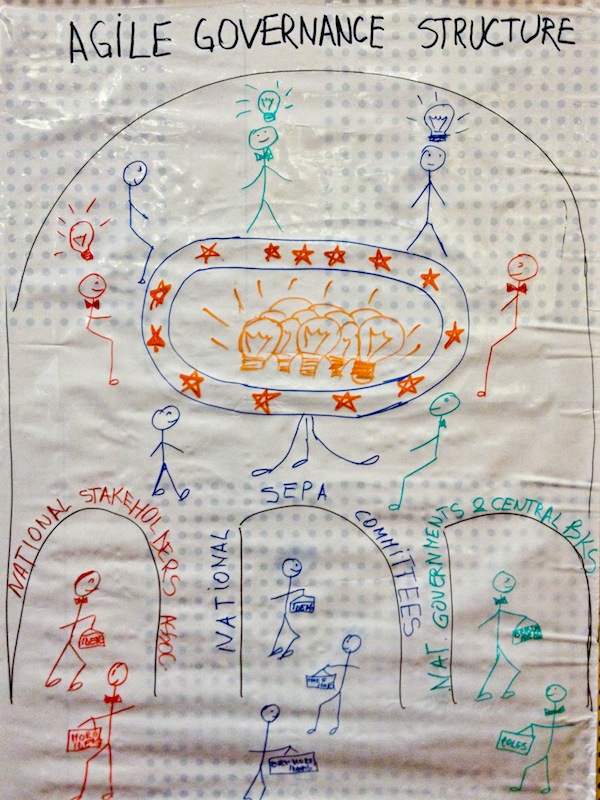 AGILE GOVERNANCE STRUCTURE
NATIONAL STAKEHOLDERS ASSOC
NATIONAL SEPA COMMITTEES
NAT. GOVERNMENTS & CENTRAL BKS
IDEAS
IDEAS
MORE IDEAS
RULES